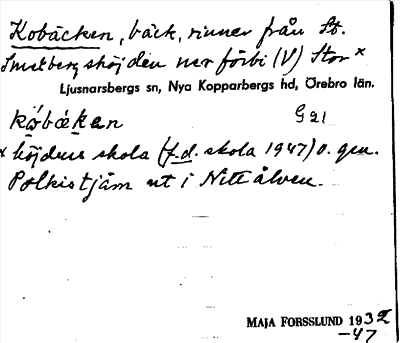 Kobäcken, bäck, rinner från St.
Smalbergshöjden ner förbi (V) Stor x
Ljusnarsbergs sn, Nya Kopparbergs hd, Örebro län.
kóbækan G 21
x höjdens skola (f.d. skola 1947) o. gm.
Polkistjärn ut i Nittälven.
MAJA FORSSLUND 1932
-47